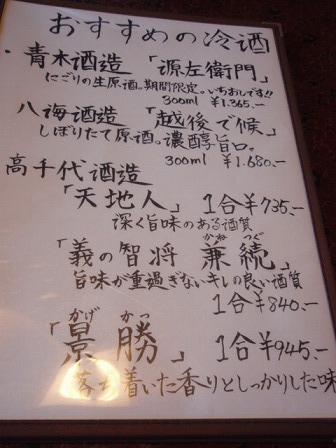 おすすめの冷酒
・青木酒造 「源左衛門」
にごりの生原酒。期間限定。いちおしです!!
300ml ¥1.365.-
八海酒造 「越後で候」
しぼりたて原酒。濃醇旨口。
300ml ¥1.680.-
高千代酒造
「天地人」 1合¥735.-
深く旨味のある酒質
かね つぐ
「義の智将 兼続」
旨味が重過ぎないキレの良い酒質
1合¥840.-
かげ かつ
「景 勝」 1合¥945.-
落ち着いた香りとしっかりした味